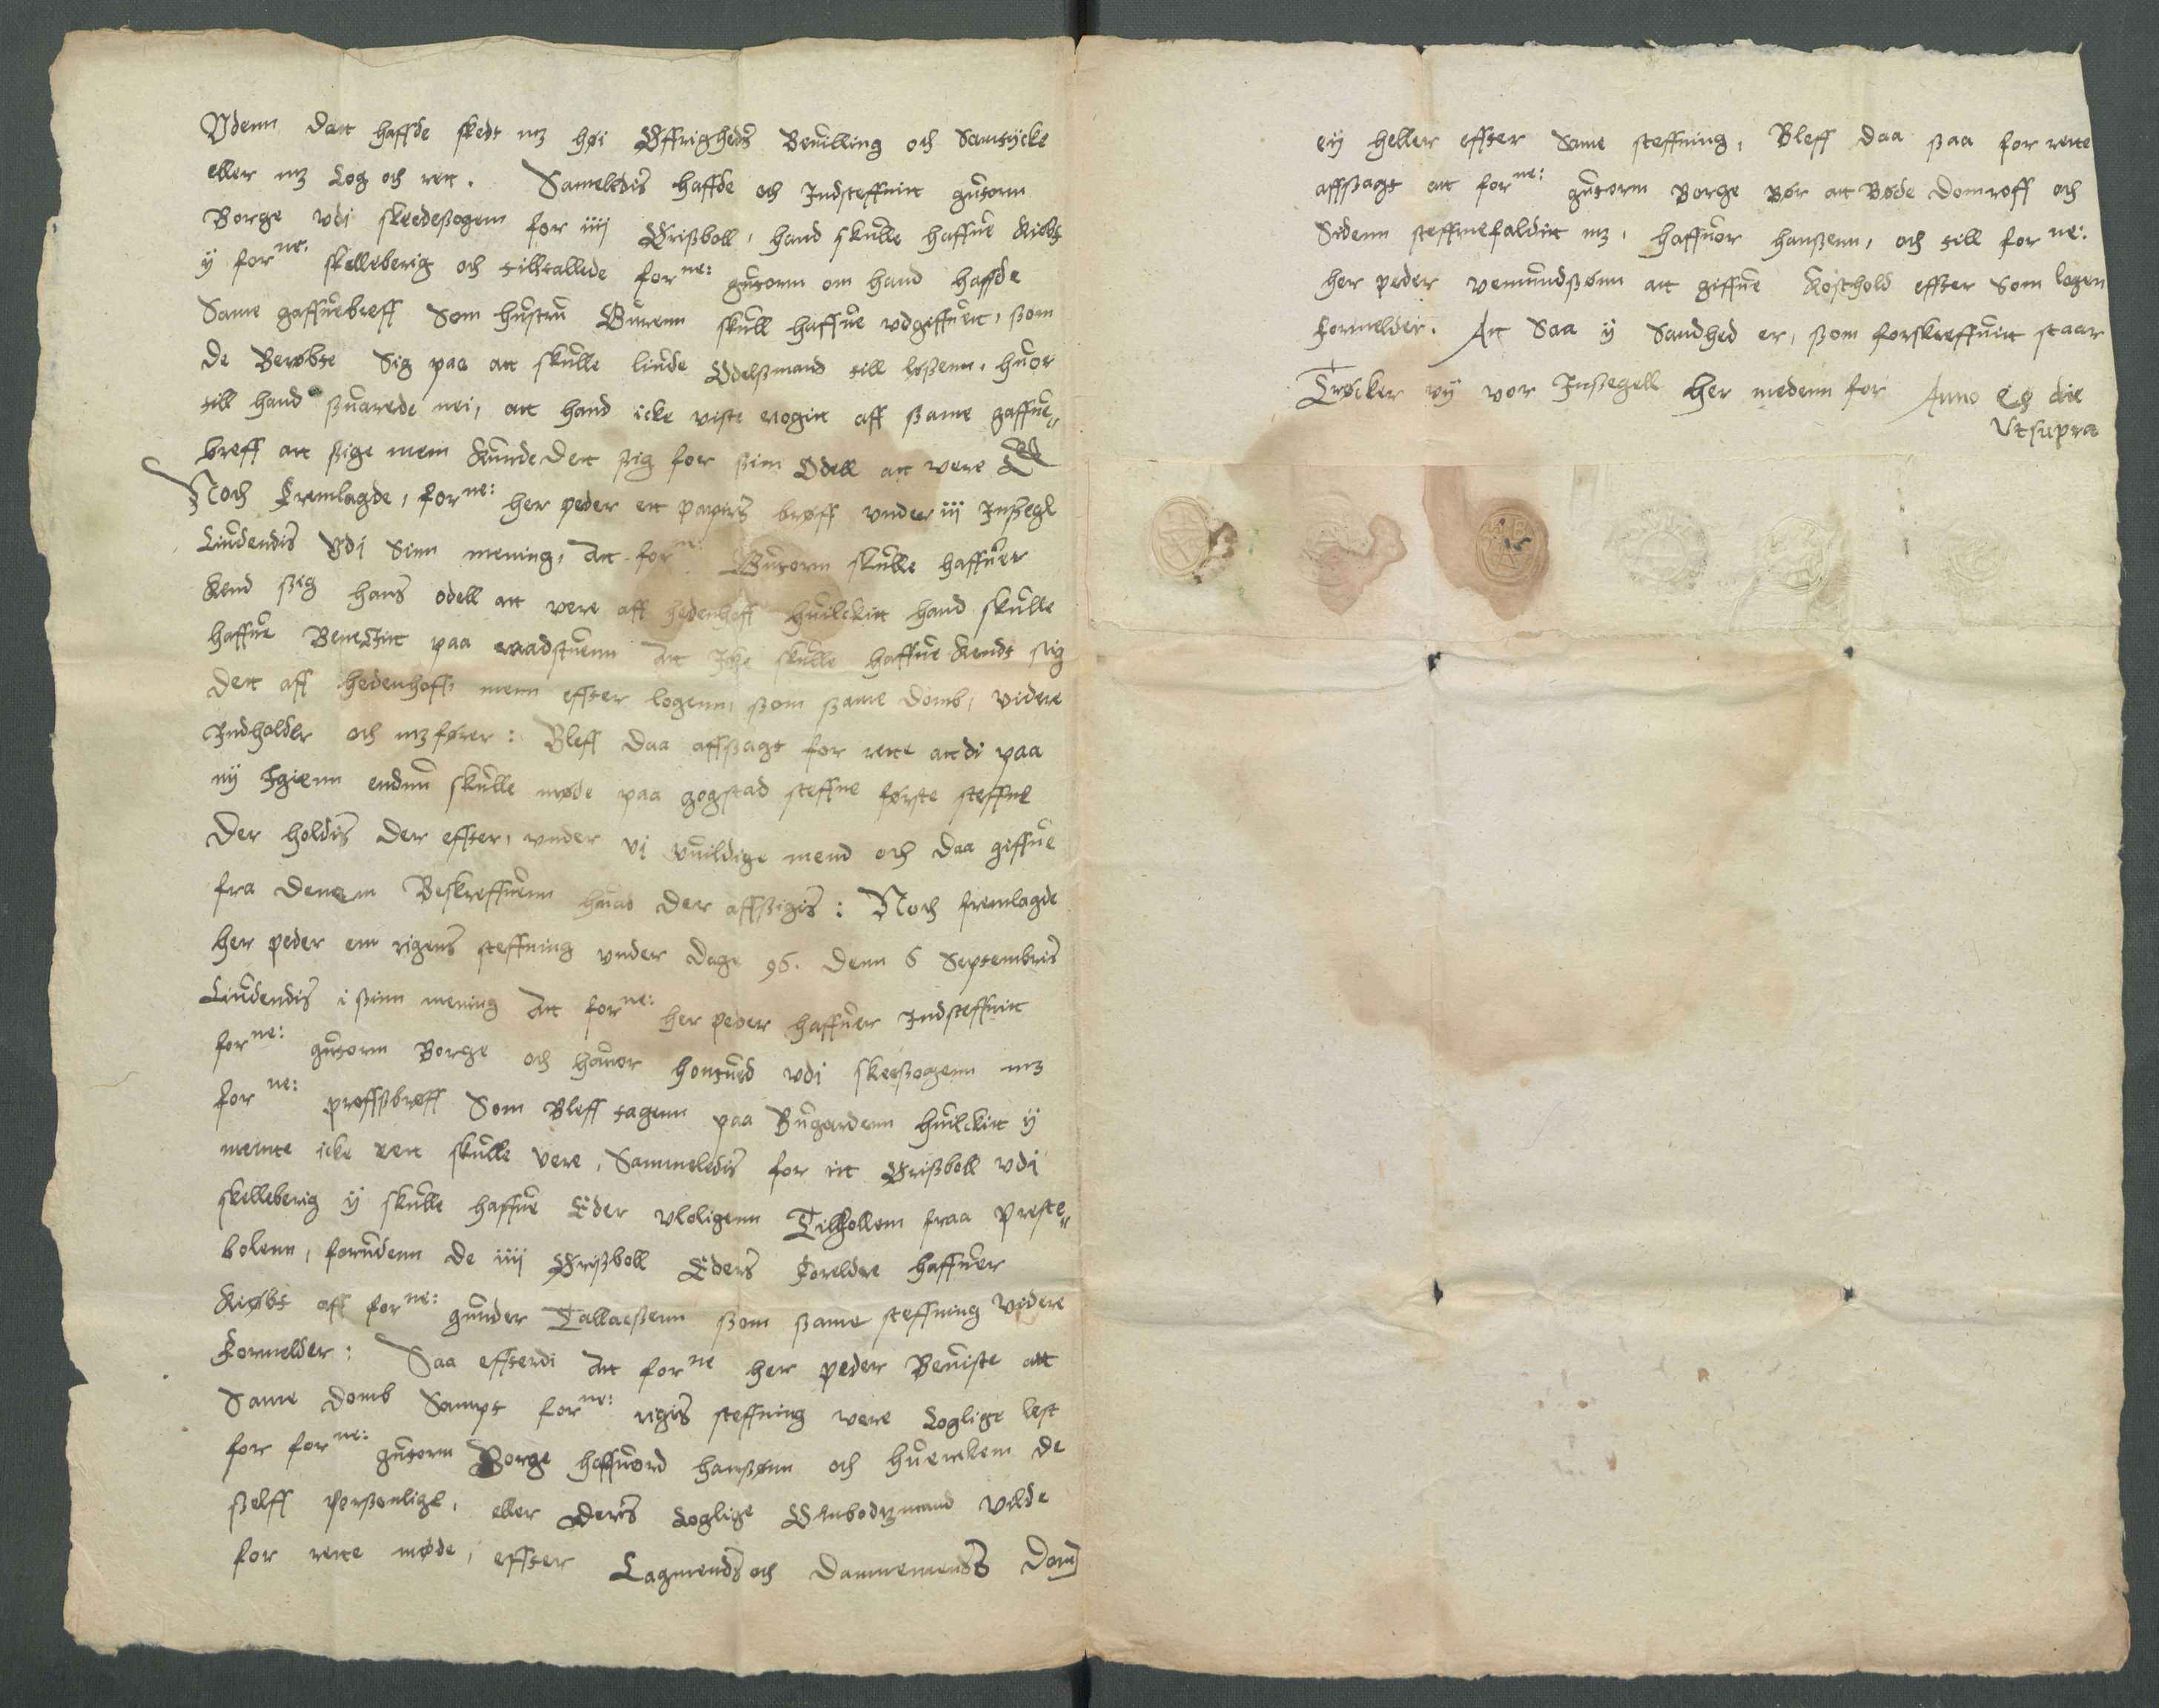 Vdenn dett haffde skedt mz høi Øffrigheds Beuilling och Samtycke
eller mz Log och rett. Sameledis haffde och Indsteffnitt gutorm
Borge vdi skeedeßogenn for iiij Ørißboll, hand skulle haffue kiøbt
ÿ forne: skelleberig och tilltallede forne: gutorm om hand haffde
Same gaffuebreff Som hustru Gurenn skull haffue vdgiffuett, ßom
de Berøbte Sig paa att skulle liude Odelßmand till løßenn, huor
till hand ßuarede nei, att hand icke viste nogitt aff ßame gaffue„
breff att ßige menn kunde dett ßig for ßinn Odell att were
Noch Fremlagde, forne: her peder ett papirs breff vnder iij Inßegle
Liudendis Vdi Sinn mening, Att forne: Gutorm skulle haffuer
kend ßig hans odell att vere aff hedenhoff huilckitt hand skulle
haffue Benechtit paa raadstuenn Att Icke skulle haffue kendt ßig
dett aff hedenhoff, menn effter logenn, ßom ßame domb, videre
Indholder och mzfører: Bleff daa affßagt for rette att di paa
nÿ Igienn endnu skulle møde paa gogstad steffne første steffne
Der holdis der effter, vnder vj vuildige mend och daa giffue
fra dennem Beskreffuenn huad der affßigis: Noch fremlagde
her peder enn rigens steffning vnder dage 96. denn 6 Septembris
Liudendis i ßinn mening Att forne: her peder haffuer Indsteffnitt
forne: gutorm Borge och hauor hontued vdi skeeßogenn mz
forne: proffßbreff Som Bleff tagenn paa Bugardenn huilckitt ÿ
mente icke rett skulle vere, Sammeledis for itt Ørißboll vdi
skelleberig ÿ skulle haffue Eder vloligenn Tilhollenn fraa preste„
bolenn, forudenn de iiij Ørißboll Eders Foreldre haffuer
kiøbt aff forne: gunder Tallacßenn ßom ßame steffning videre
Formelder: Saa effterdi Att forne her peder Beuiste att
Same domb Sampt forne: rigis steffning were Loglige lest
for forne: gutorm Borge haffuord hanßønn och huerckenn de
ßelff Perßonlige, eller deris Loglige Ombodzmand vilde
for rette møde, effter Lagmends och Dannemends Dom
eÿ heller effter Same steffning, Bleff daa ßaa for rette
affßagt att forne: gutorm Borge Bør att Bøde domroff och
Sidenn steffnefalditt mz, haffuor hanßenn, och till forne:
her peder vemundßønn att giffue kosthold effter Som logen
formelder. Att Saa ÿ Sandhed er, ßom forskreffuitt staar
Trøcker vÿ vor Inßegell her nedenn for Anno Et die
Vt supra